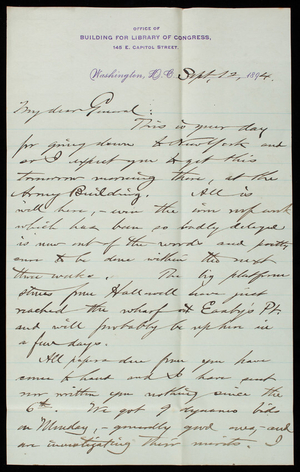 OFFICE OF
BUILDING FOR LIBRARY OF CONGRESS,
145 E. CAPITOL STREET.
Washington, D.C. Sept. 12, 1894.
My dear General:
This is your day
for going down to New York and
so I expect you to get this
tomorrow morning there, at the
Army Building. All is
well here, - even the iron roof work
which has been so badly delayed
is now out of the woods and
sure to be done within the next
three weeks. The big platform
stones from Hallowell have just
reached the wharf at Easby's Pt.
and will probably be up here in
a few days.
All papers due from you have
come to hand and I have sent
nor written you nothing since the
6th. We got 9 bids
on Monday, - generally good ones, - and
are investigating their merits. I